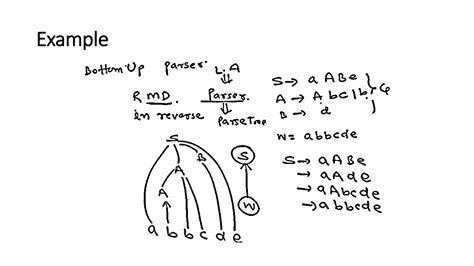 Example
Bottom Up parser:
L.A
⇓
RMD. Parser
in reverse
⇓
ParseTree
S → aABe
A → Abc|b
B → d
} G
w = abbcde
S → aABe
→ aAde
→ aAbcde
→ abbcde
S
B
A
A
a b b c d e
S
W